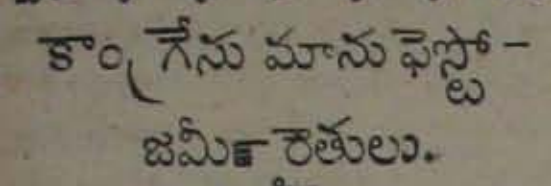 కాంగ్రేసు మానుఫెస్టో -
జమీన్ రైతులు.